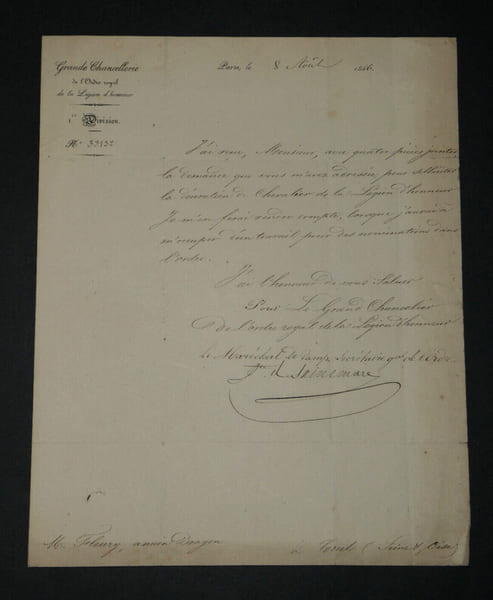 Grande Chancellerie
de l'Ordre royal
de la Légion d'honneur
1re Division.
No 33132
Paris, le 8 Août 1846.
J'ai reçu, Monsieur, avec quatre pièces jointes
la demande que vous m'avez adressée pour solliciter
la décoration de Chevalier de la Légion d'honneur
Je m'en ferai rendre compte, lorsque j'aurai à
m'occuper d'un travail pour des nominations dans
l'ordre.
J'ai l'honneur de vous saluer
Pour Le Grand Chancelier
de l'ordre royal de la Légion d'honneur
le Maréchal de camp Secrétaire gal de l'ordre
Vte de Saint mars
M. Fleury, ancien Dragon
à (Seine & Oise)